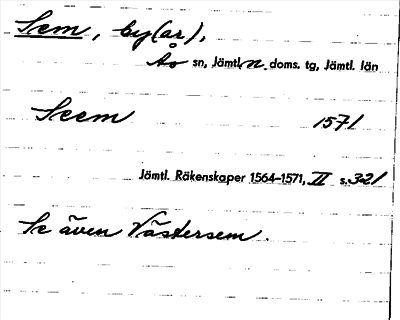 Sem, by(ar),
Ås sn, Jämtl. n. doms. tg, Jämtl. län
Seem 1571
Jämtl. Räkenskaper 1564–1571, II s. 321
Se även Västersem.